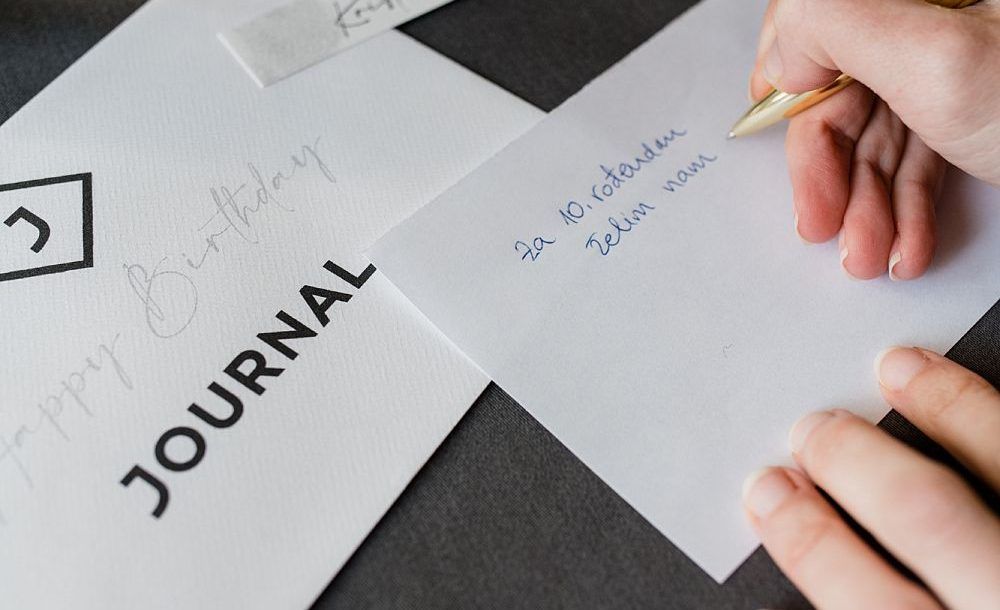 J
Happy Birthday
JOURNAL
Za 10. rođendan
želim nam